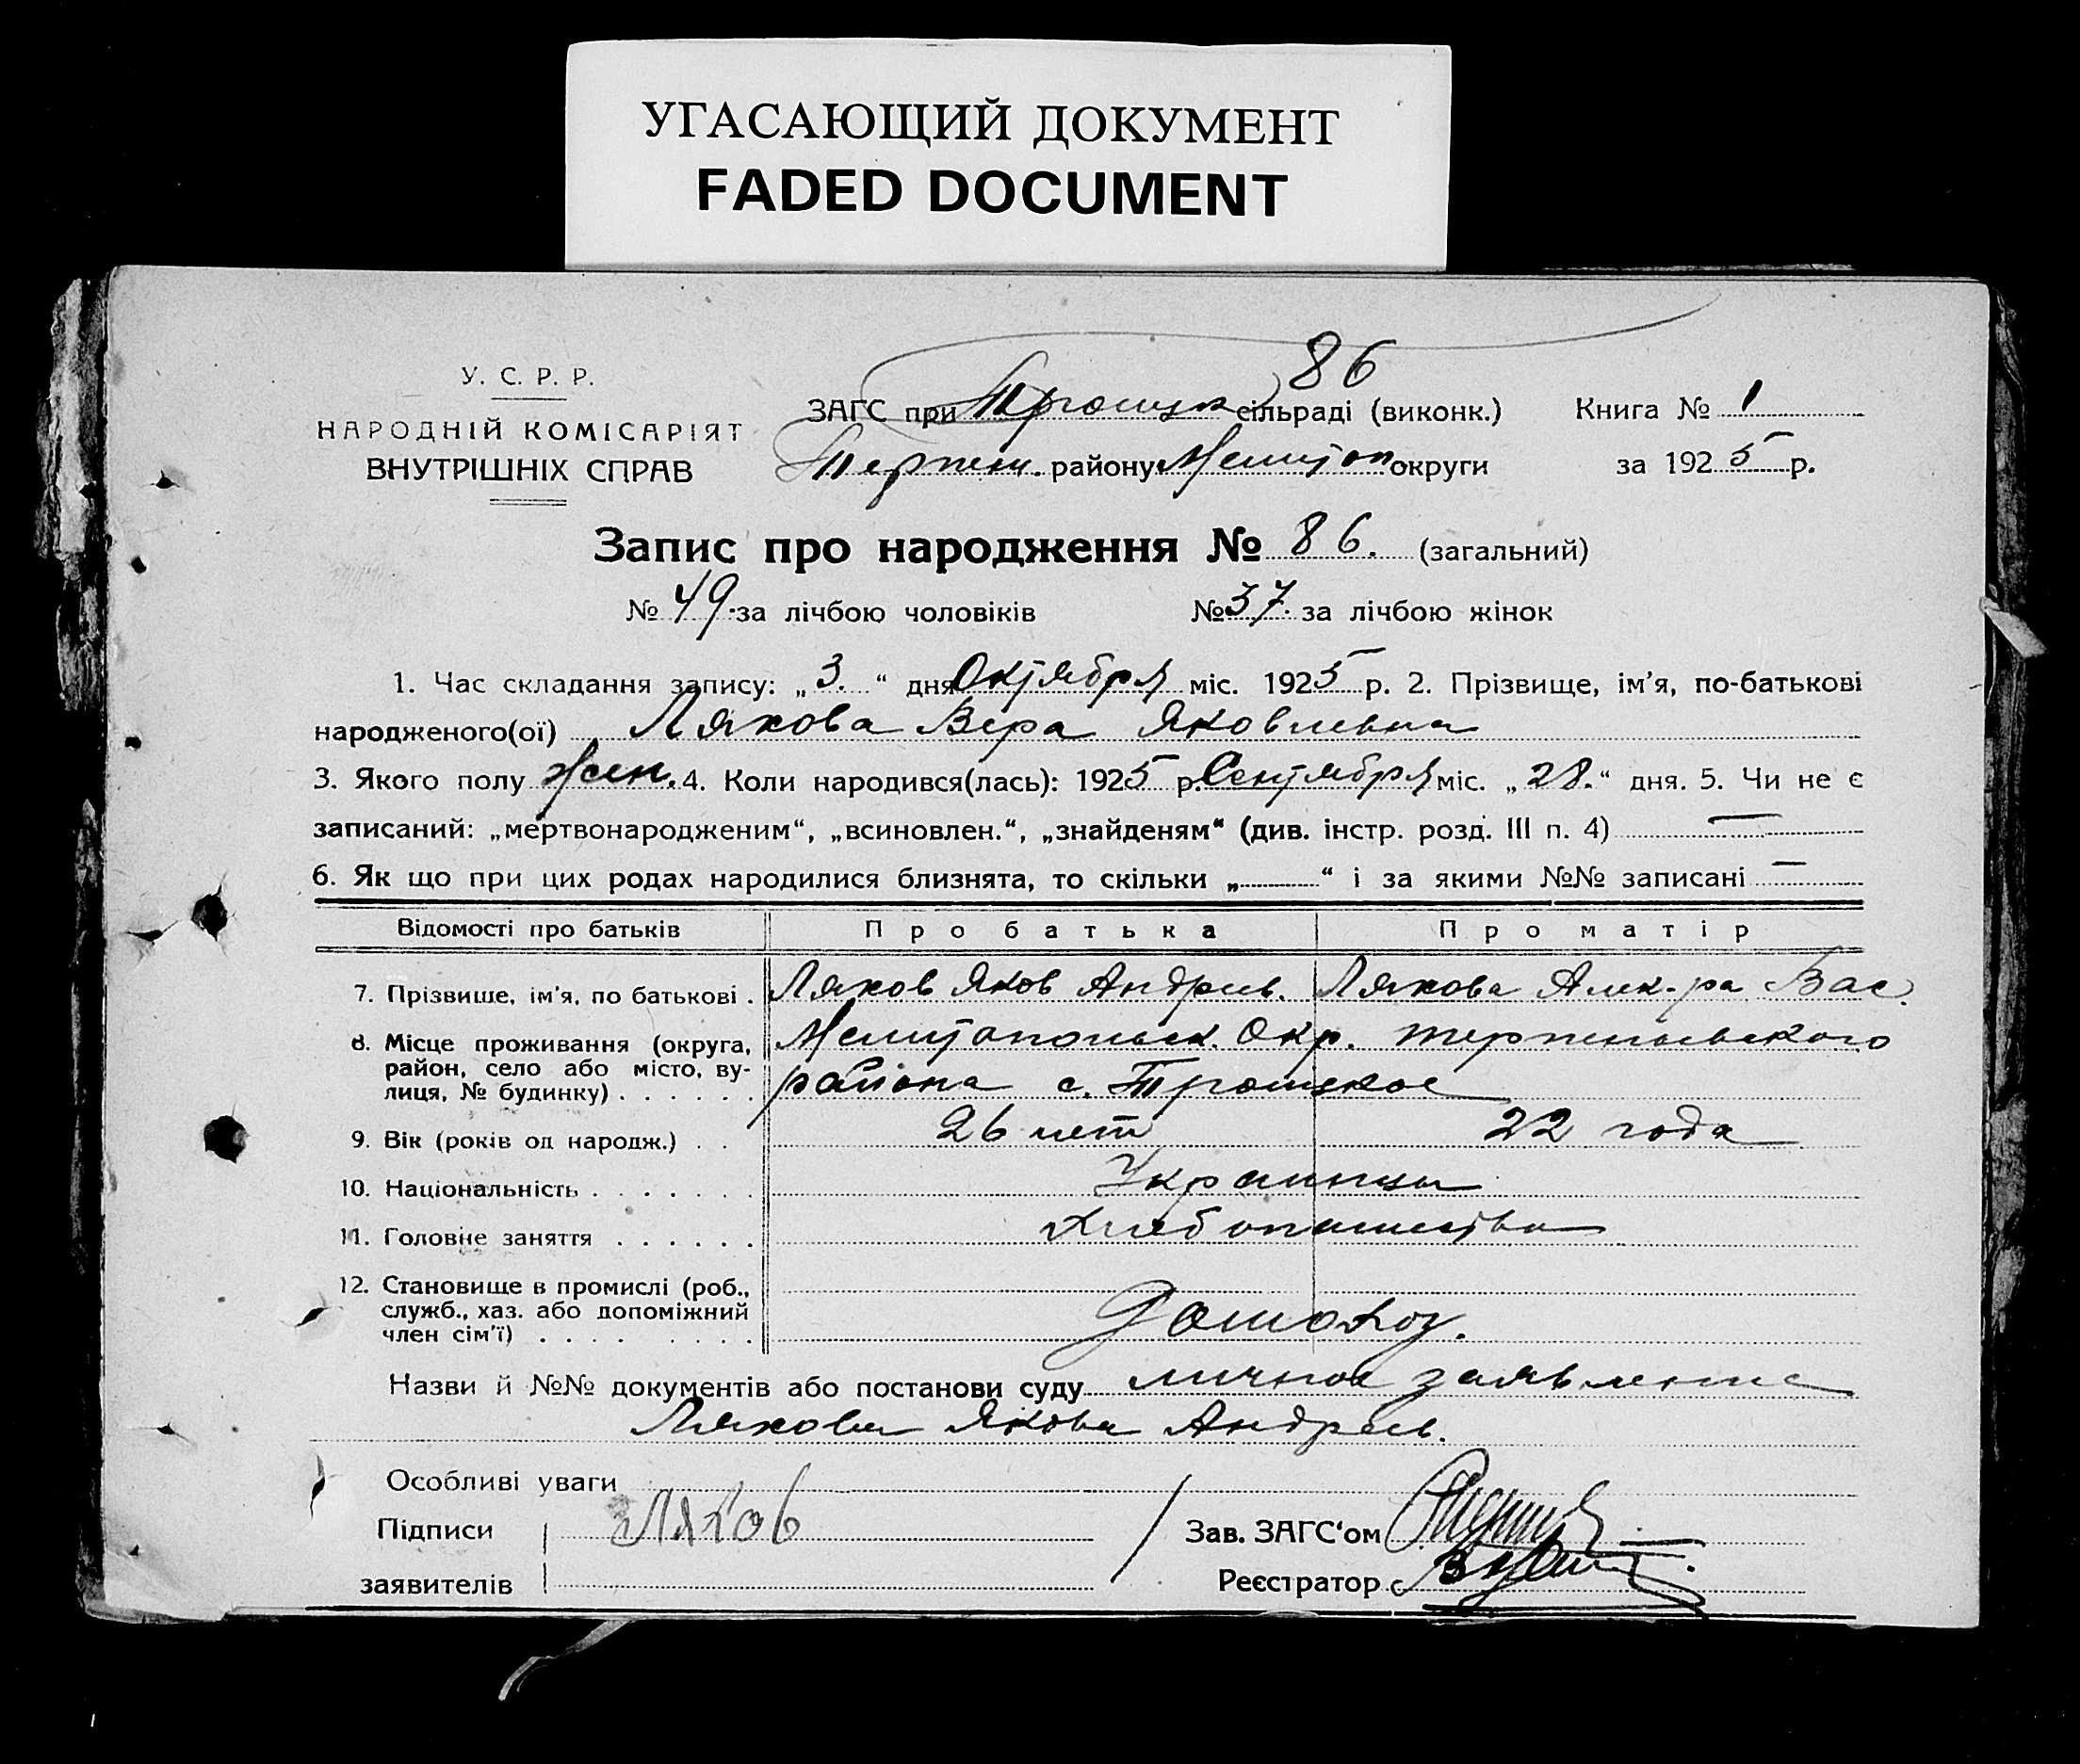 УГАСАЮЩИЙ ДОКУМЕНТ
FADED DOCUMENT
86
У. С. Р. Р.
НАРОДНІЙ КОМІСАРІЯТ
ВНУТРІШНІХ СПРАВ
ЗАГС при Троицк сільраді (виконк.) Книга № 1
Терпен. району Мелитоп округи за 1925 р.
Запис про народження № 86. (загальний)
№ 49. за лічбою чоловіків № 37. за лічбою жінок
1. Час складання запису: „3.“ дня Октября міс. 1925 р. 2. Прізвище, ім’я, по-батькові
народженого(ої) Ляхова Вера Яковлевна
3. Якого полу жен. 4. Коли народився(лась): 1925 р. Сентября міс. „28.“ дня. 5. Чи не є
записаний: „мертвонародженим“, „всиновлен.“, „знайденям“ (див. інстр. розд. III п. 4) —
6. Як що при цих родах народилися близнята, то скільки „ “ і за якими №№ записані —
Відомості про батьків Про батька Про матір
7. Прізвише, ім’я, по батькові . Ляхов Яков Андреев. Ляхова Алек-ра Вас.
8. Місце проживання (округа, район, село або місто, вулиця, № будинку) . . . . . . Мелитопольск. Окр. Терпеньевского
района с. Троицкое
9. Вік (років од народж.) . . 26 лет 22 года
10. Національність . . . . . . . Украинцы
11. Головне заняття . . . . . . Хлебопашество
12. Становище в промислі (роб., служб., хаз. або допоміжний член сім’ї) . . . . . . Домохоз.
Назви й №№ документів або постанови суду личное заявление
Ляхова Якова Андреев.
Особливі уваги
Підписи Ляхов Зав. ЗАГС‘ом
заявителів Реєстратор